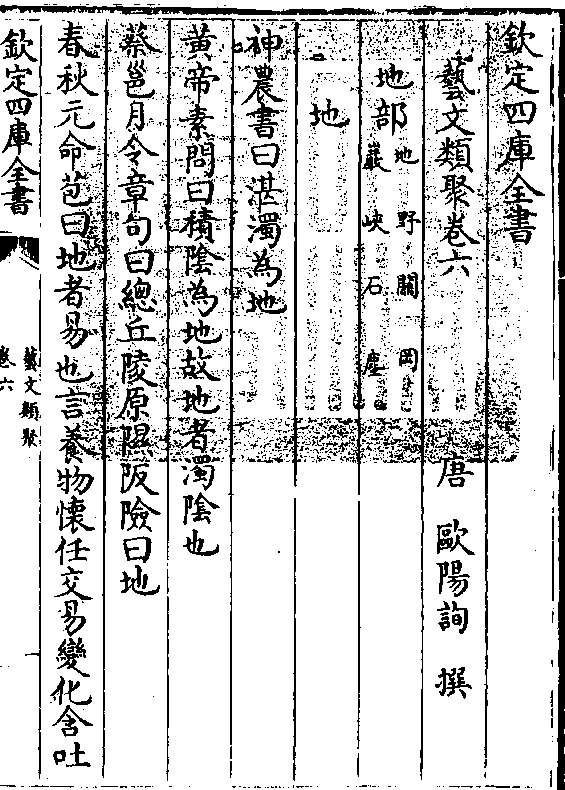 欽定四庫全書
藝文類聚卷六
唐 歐陽詢 撰
地部 地 野 關 岡
巖 峽 石 塵
地
神農書曰湛濁為地
黄帝素問曰積陰為地故地者濁陰也
蔡邕月令章句曰總丘陵原隰阪險曰地
春秋元命苞曰地者易也言養物懷任交易變化含吐
欽定四庫全書
藝文類聚
卷六
一